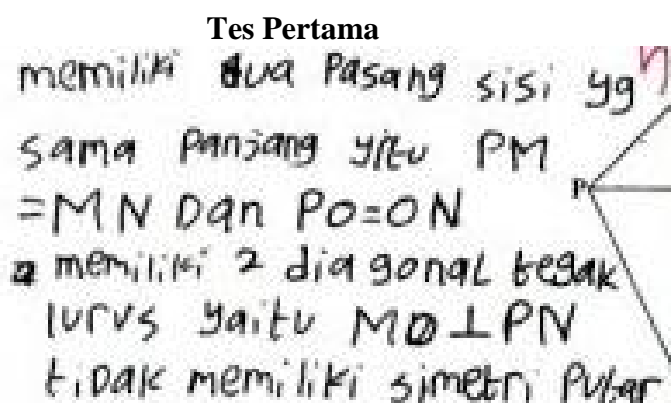 Tes Pertama
memiliki dua Pasang sisi yg
sama Panjang yitu PM
=MN Dan PO=ON
memiliki 2 diagonal tegak
lurus yaitu MO⊥PN
tiDak memiliki simetri Putar
P